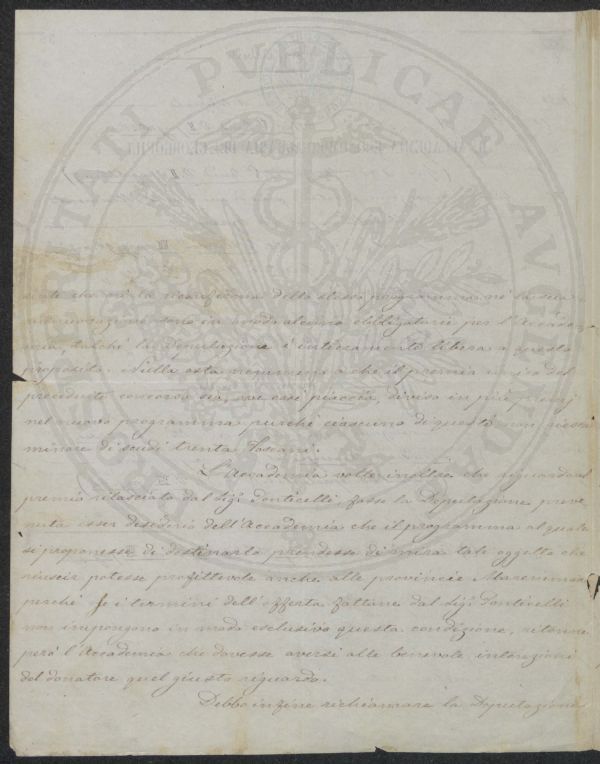 zione che nè la riconferma dello stesso programma nè la sua
rinnovazione sono in modo alcuno obbligatorie per l'Accade
mia, talchè la Deputazione è intieramente libera a questo
proposito. Nulla osta nemmeno a che il premio unico del
precedente concorso sia, ove così piaccia, diviso in più premj
nel nuovo programma, purchè ciascuno di questi non riesca
minore di scudi trenta Toscani.
L'Accademia volle inoltre che riguardo al
premio rilasciato dal Sig.r Ponticelli, fosse la Deputazione preve
nuta esser desiderio dell'Accademia che il programma al quale
si proponesse di destinarlo prendesse di mira tale oggetto che
riuscir potesse profittevole anche alle provincie Maremmane
perchè se i termini dell'offerta fattane dal Sig.r Ponticelli
non impongono in modo esclusivo questa condizione, ritenne
però l'Accademia che dovesse aversi alle benevole intenzioni
del donatore quel giusto riguardo.
Debbo infine richiamare la Deputazione
PROSPERITATI PVBLICAE AVGENDAE